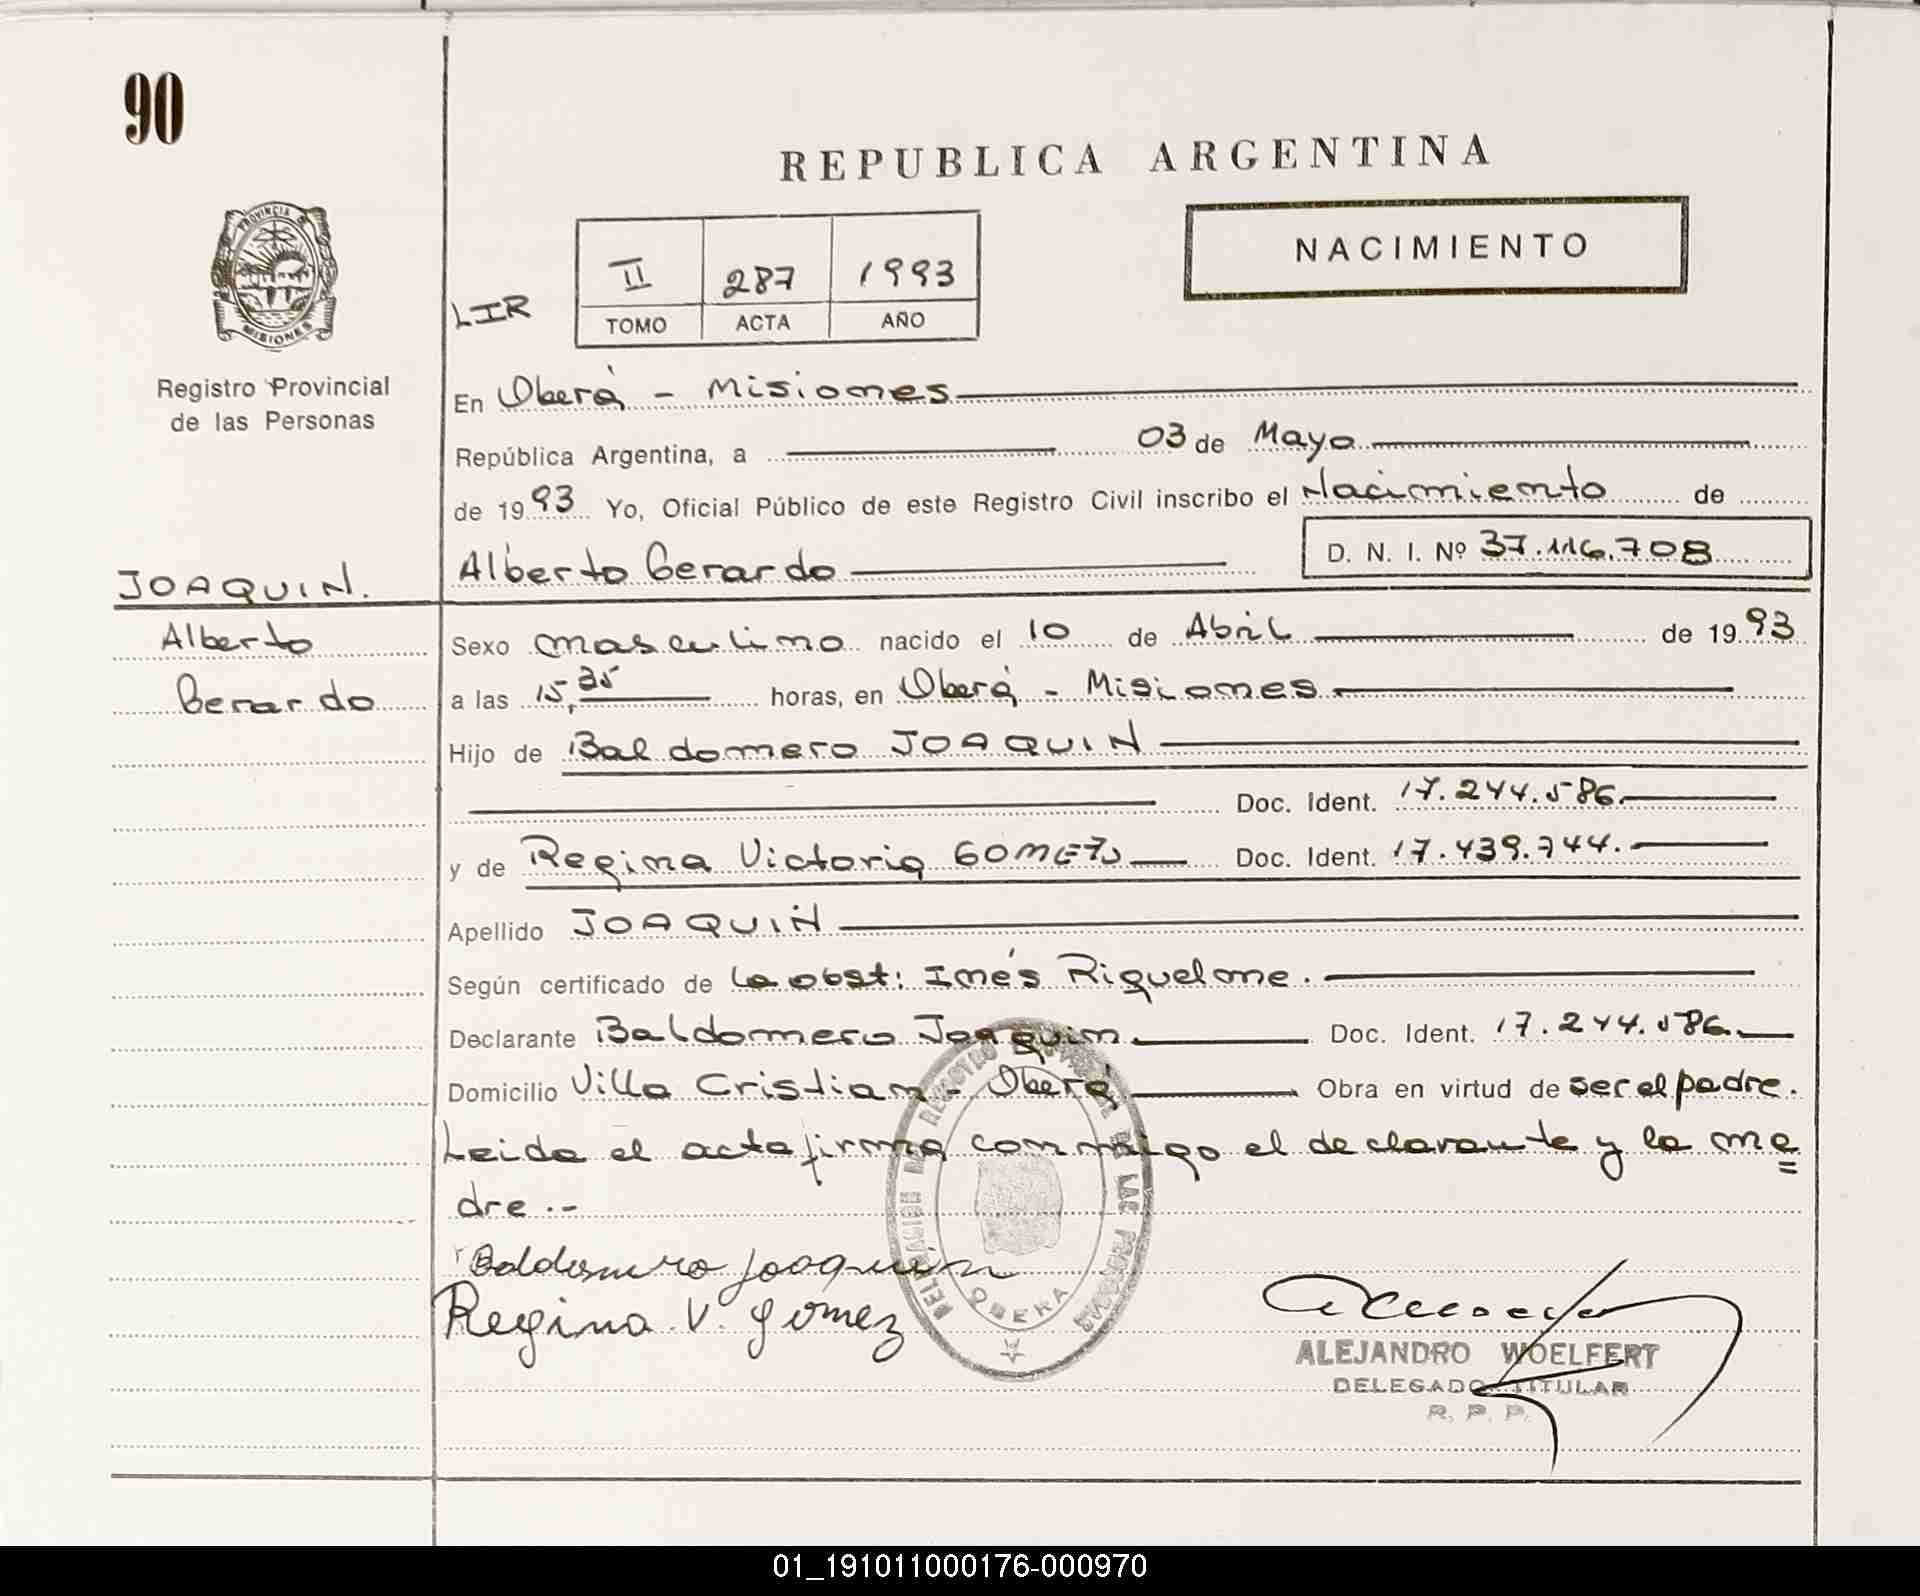 90
REPUBLICA ARGENTINA
PROVINCIA D
MISIONES
NACIMIENTO
II 287 1993
LIR
TOMO ACTA AÑO
Registro Provincial
de las Personas
En Oberá - Misiones
República Argentina, a 03 de Mayo
de 1993 Yo, Oficial Público de este Registro Civil inscribo el Nacimiento de
Alberto Gerardo D. N. I. Nº 37.116.708
JOAQUIN.
Alberto
Gerardo
Sexo masculino nacido el 10 de Abril de 1993
a las 15,35 horas, en Oberá - Misiones
Hijo de Baldomero JOAQUIN
Doc. Ident. 17.244.586.
y de Regina Victoria GOMEZ Doc. Ident. 17.439.744.
Apellido JOAQUIN
Según certificado de la obst: Inés Riquelme.
Declarante Baldomero Joaquin Doc. Ident. 17.244.586.
Domicilio Villa Cristian - Oberá Obra en virtud de ser el padre.
Leida el acta firma conmigo el declarante y la ma
dre.-
Baldomero Joaquín
Regina V. Gomez
OBERA
ALEJANDRO WOELFERT
DELEGADO TITULAR
R. P. P.
01_191011000176-000970